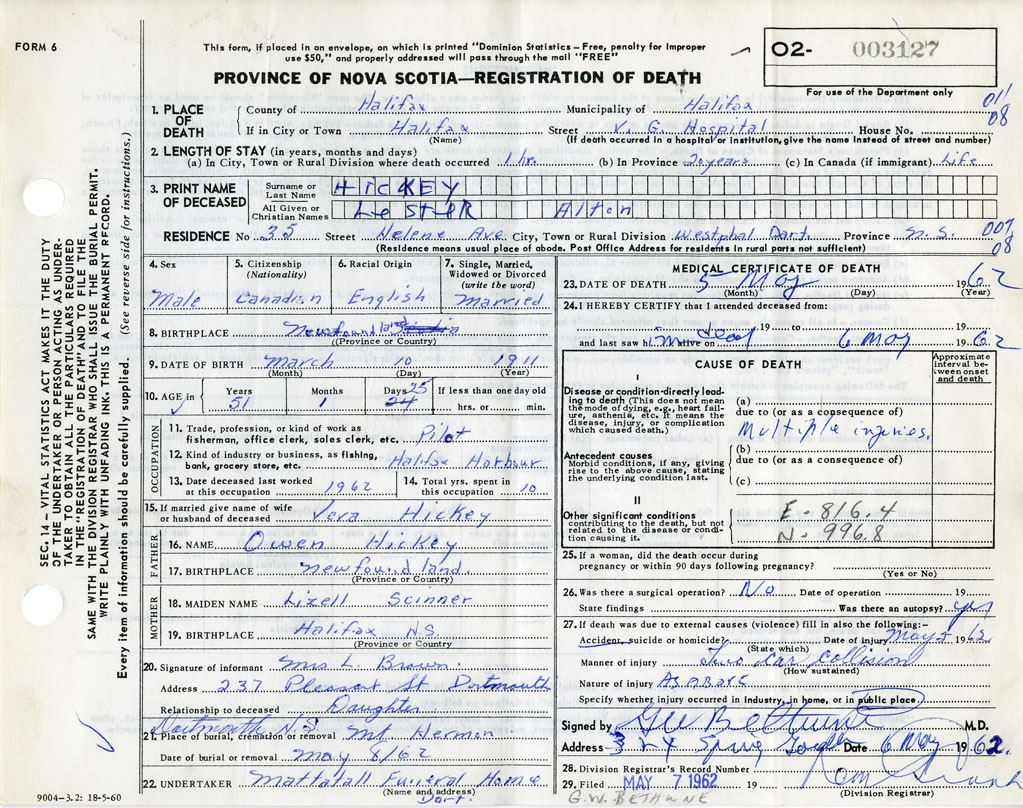 FORM 6
This form, if placed in an envelope, on which is printed "Dominion Statistics – Free, penalty for improper
use $50," and properly addressed will pass through the mail "FREE"
O2- 003127
For use of the Department only
PROVINCE OF NOVA SCOTIA—REGISTRATION OF DEATH
SEC. 14 – VITAL STATISTICS ACT MAKES IT THE DUTY
OF THE UNDERTAKER OR PERSON ACTING AS UNDER-
TAKER TO OBTAIN ALL THE PARTICULARS REQUIRED
IN THE "REGISTRATION OF DEATH" AND TO FILE THE
SAME WITH THE DIVISION REGISTRAR WHO SHALL ISSUE THE BURIAL PERMIT.
WRITE PLAINLY WITH UNFADING INK. THIS IS A PERMANENT RECORD.
Every item of information should be carefully supplied. (See reverse side for instructions.)
1. PLACE OF DEATH
County of Halifax Municipality of Halifax
011
08
If in City or Town Halifax Street V. G. Hospital House No.
(Name) (If death occurred in a hospital or institution, give the name instead of street and number)
2. LENGTH OF STAY (in years, months and days)
(a) In City, Town or Rural Division where death occurred 1 hr. (b) In Province 20 years (c) In Canada (if immigrant) Life
3. PRINT NAME OF DECEASED
Surname or Last Name HICKEY
All Given or Christian Names LeSTER Alton
RESIDENCE No. 35 Street Helene Ave City, Town or Rural Division Westphal Dart. Province N.S.
009
08
(Residence means usual place of abode. Post Office Address for residents in rural parts not sufficient)
4. Sex
Male
5. Citizenship
(Nationality)
Canadian
6. Racial Origin
English
7. Single, Married,
Widowed or Divorced
(write the word)
Married
8. BIRTHPLACE Newfoundland
(Province or Country)
9. DATE OF BIRTH March 10 1911
(Month) (Day) (Year)
10. AGE in Years 51 Months 1 Days 25 24 If less than one day old
hrs. or min.
OCCUPATION
11. Trade, profession, or kind of work as
fisherman, office clerk, sales clerk, etc. Pilot
12. Kind of industry or business, as fishing,
bank, grocery store, etc. Halifax Harbour
13. Date deceased last worked
at this occupation 1962
14. Total yrs. spent in
this occupation 10
15. If married give name of wife
or husband of deceased Vera Hickey
FATHER
16. NAME Owen Hickey
17. BIRTHPLACE Newfoundland
(Province or Country)
MOTHER
18. MAIDEN NAME Lizell Scinner
19. BIRTHPLACE Halifax N.S.
(Province or Country)
20. Signature of informant Mrs L. Brown
Address 237 Pleasant St Dartmouth
Relationship to deceased Daughter
Dartmouth N.S.
21. Place of burial, cremation or removal Mt Hermon
Date of burial or removal May 8/62
22. UNDERTAKER Mattatall Funeral Home
(Name and address)
Dart.
9004-3.2: 18-5-60
MEDICAL CERTIFICATE OF DEATH
23. DATE OF DEATH 5 May 1962
(Month) (Day) (Year)
24. I HEREBY CERTIFY that I attended deceased from:
19 to 19
and last saw him dead alive on 6 May 1962
CAUSE OF DEATH
Approximate
interval be-
tween onset
and death
I
Disease or condition directly lead-
ing to death (This does not mean
the mode of dying, e.g., heart fail-
ure, asthenia, etc. It means the
disease, injury, or complication
which caused death.)
(a)
due to (or as a consequence of)
Multiple injuries.
Antecedent causes
Morbid conditions, if any, giving
rise to the above cause, stating
the underlying condition last.
(b)
due to (or as a consequence of)
(c)
II
Other significant conditions
contributing to the death, but not
related to the disease or condi-
tion causing it.
E - 816.4
N - 996.8
25. If a woman, did the death occur during
pregnancy or within 90 days following pregnancy?
(Yes or No)
26. Was there a surgical operation? No Date of operation 19
State findings Was there an autopsy? yes
27. If death was due to external causes (violence) fill in also the following:-
Accident, suicide or homicide? Date of injury May 5 1962
(State which)
Manner of injury Two Car Collision
(How sustained)
Nature of injury As above
Specify whether injury occurred in industry, in home, or in public place.
Signed by G W Bethune M.D.
Address 324 Spring Date 6 May 1962.
28. Division Registrar's Record Number
29. Filed MAY 7 1962 19
(Division Registrar)
G.W. BETHUNE